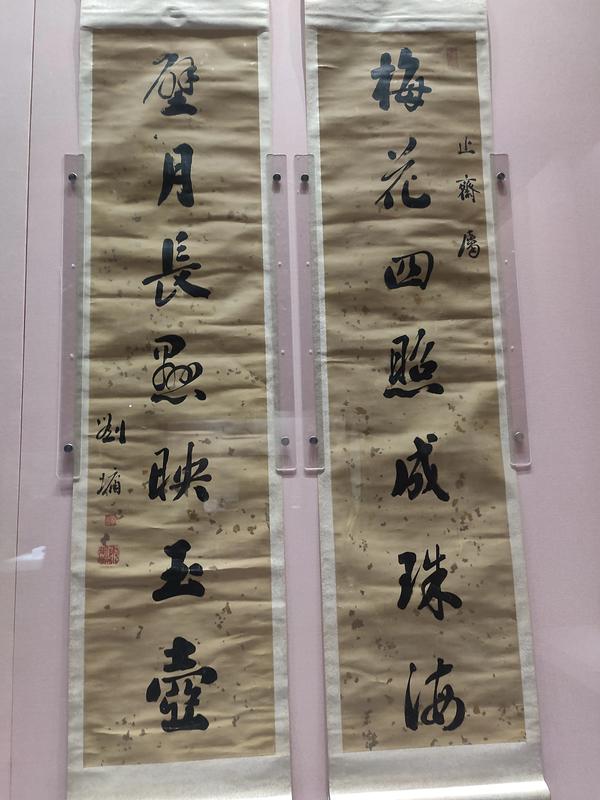 止齋屬
梅花四照成珠海
璧月長懸映玉壺
劉墉